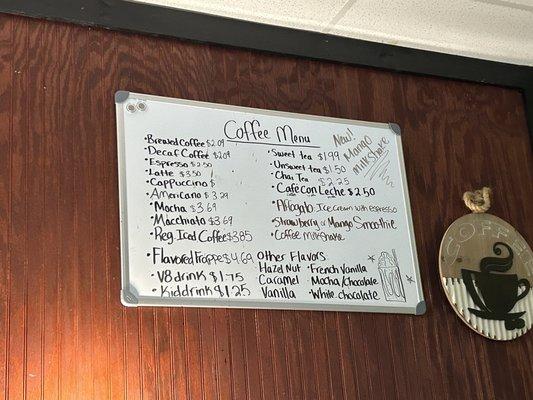 Coffee Menu
• Brewed Coffee $2.09
• Decaf Coffee $2.09
• Espresso $2.50
• Latte $3.50
• Cappuccino $
• Americano $3.29
• Mocha $3.69
• Macchiato $3.69
• Reg. Iced Coffee $3.85
• Flavored Frappe $4.69
• V8 drink $1.75
• Kid drink $1.25
• Sweet tea $1.99
• Unsweet tea $1.50
• Chai Tea $2.25
• Cafe con Leche $2.50
• Affogato Ice Cream with espresso
• Strawberry or Mango Smoothie
• Coffee Milkshake
Other Flavors
Hazel Nut • French Vanilla
Caramel • Mocha/Chocolate
Vanilla • White chocolate
New!
Mango
milkshake
COFFEE